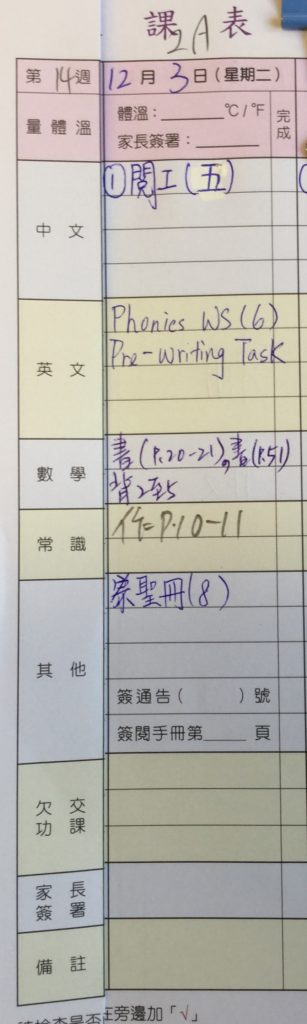 課 2A 表
第 14 週 12 月 3 日 (星期二)
量體溫 體溫：______ °C/°F 完成
家長簽署：______
中文 ①閱工(五)
英文 Phonics WS (6)
Pre-Writing Task
數學 書(P.20-21),書(P.51)
背2至5
常識 作=P.10-11
其他 聖冊(8)
簽通告( )號
簽閱手冊第____頁
欠交功課
家長簽署
備註
在旁邊加「√」